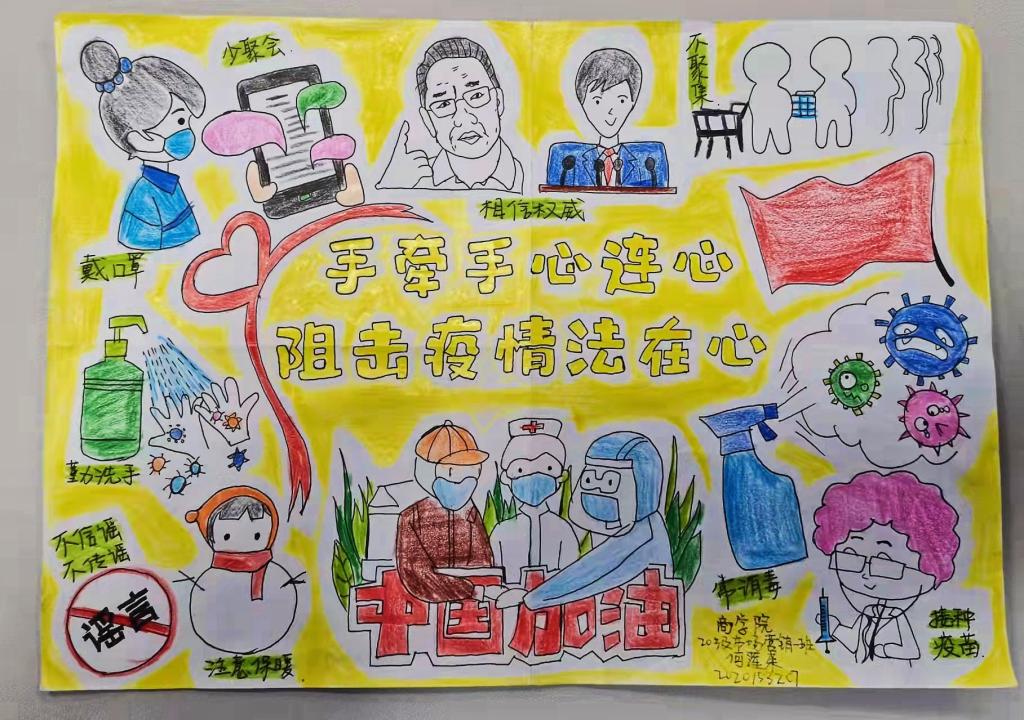 少聚会.
不聚集.
戴口罩
相信权威
手牵手心连心
阻击疫情法在心
勤洗手
不信谣
不传谣
谣言
注意保暖.
中国加油
常消毒
接种
疫苗.
商学院
20级市场营销一班